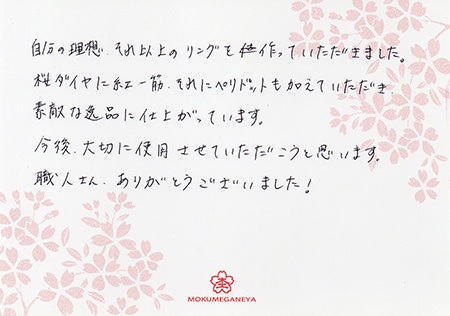 自分の理想、それ以上のリングを作っていただきました。
桜ダイヤに紅一筋、それにペリドットも加えていただき、
素敵な逸品に仕上がっています。
今後、大切に使用させていただこうと思います。
職人さん、ありがとうございました！
MOKUMEGANEYA